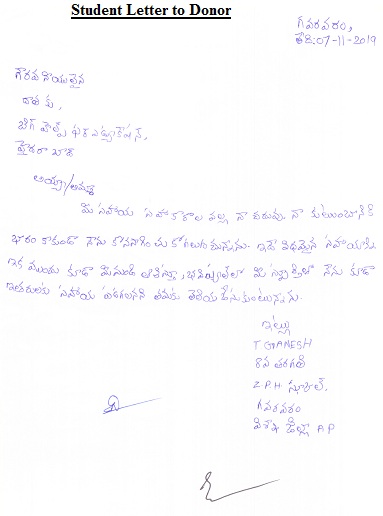 Student Letter to Donor
గవరవరం,
తేది:07-11-2019
గౌరవనీయులైన
దాతకు,
బిగ్ హెల్ప్ ఫర్ ఎడ్యుకేషన్,
హైదరాబాద్
అయ్యా/అమ్మా
మీ సహాయ సహకారాల వల్ల నా చదువు నా కుటుంబానికి
భారం కాకుండా నేను కొనసాగించుకోగలుగుతున్నాను. ఇదే విధమైన సహాయాన్ని
ఇక ముందు కూడా మీనుండి ఆశిస్తూ, భవిష్యత్తులో మీ స్ఫూర్తితో నేను కూడా
ఇతరులకు సహాయ పడగలనని తమకు తెలియచేసుకుంటున్నాను.
ఇట్లు
T GYANESH
8వ తరగతి
Z.P.H స్కూల్,
గవరవరం
విశాఖ జిల్లా A.P